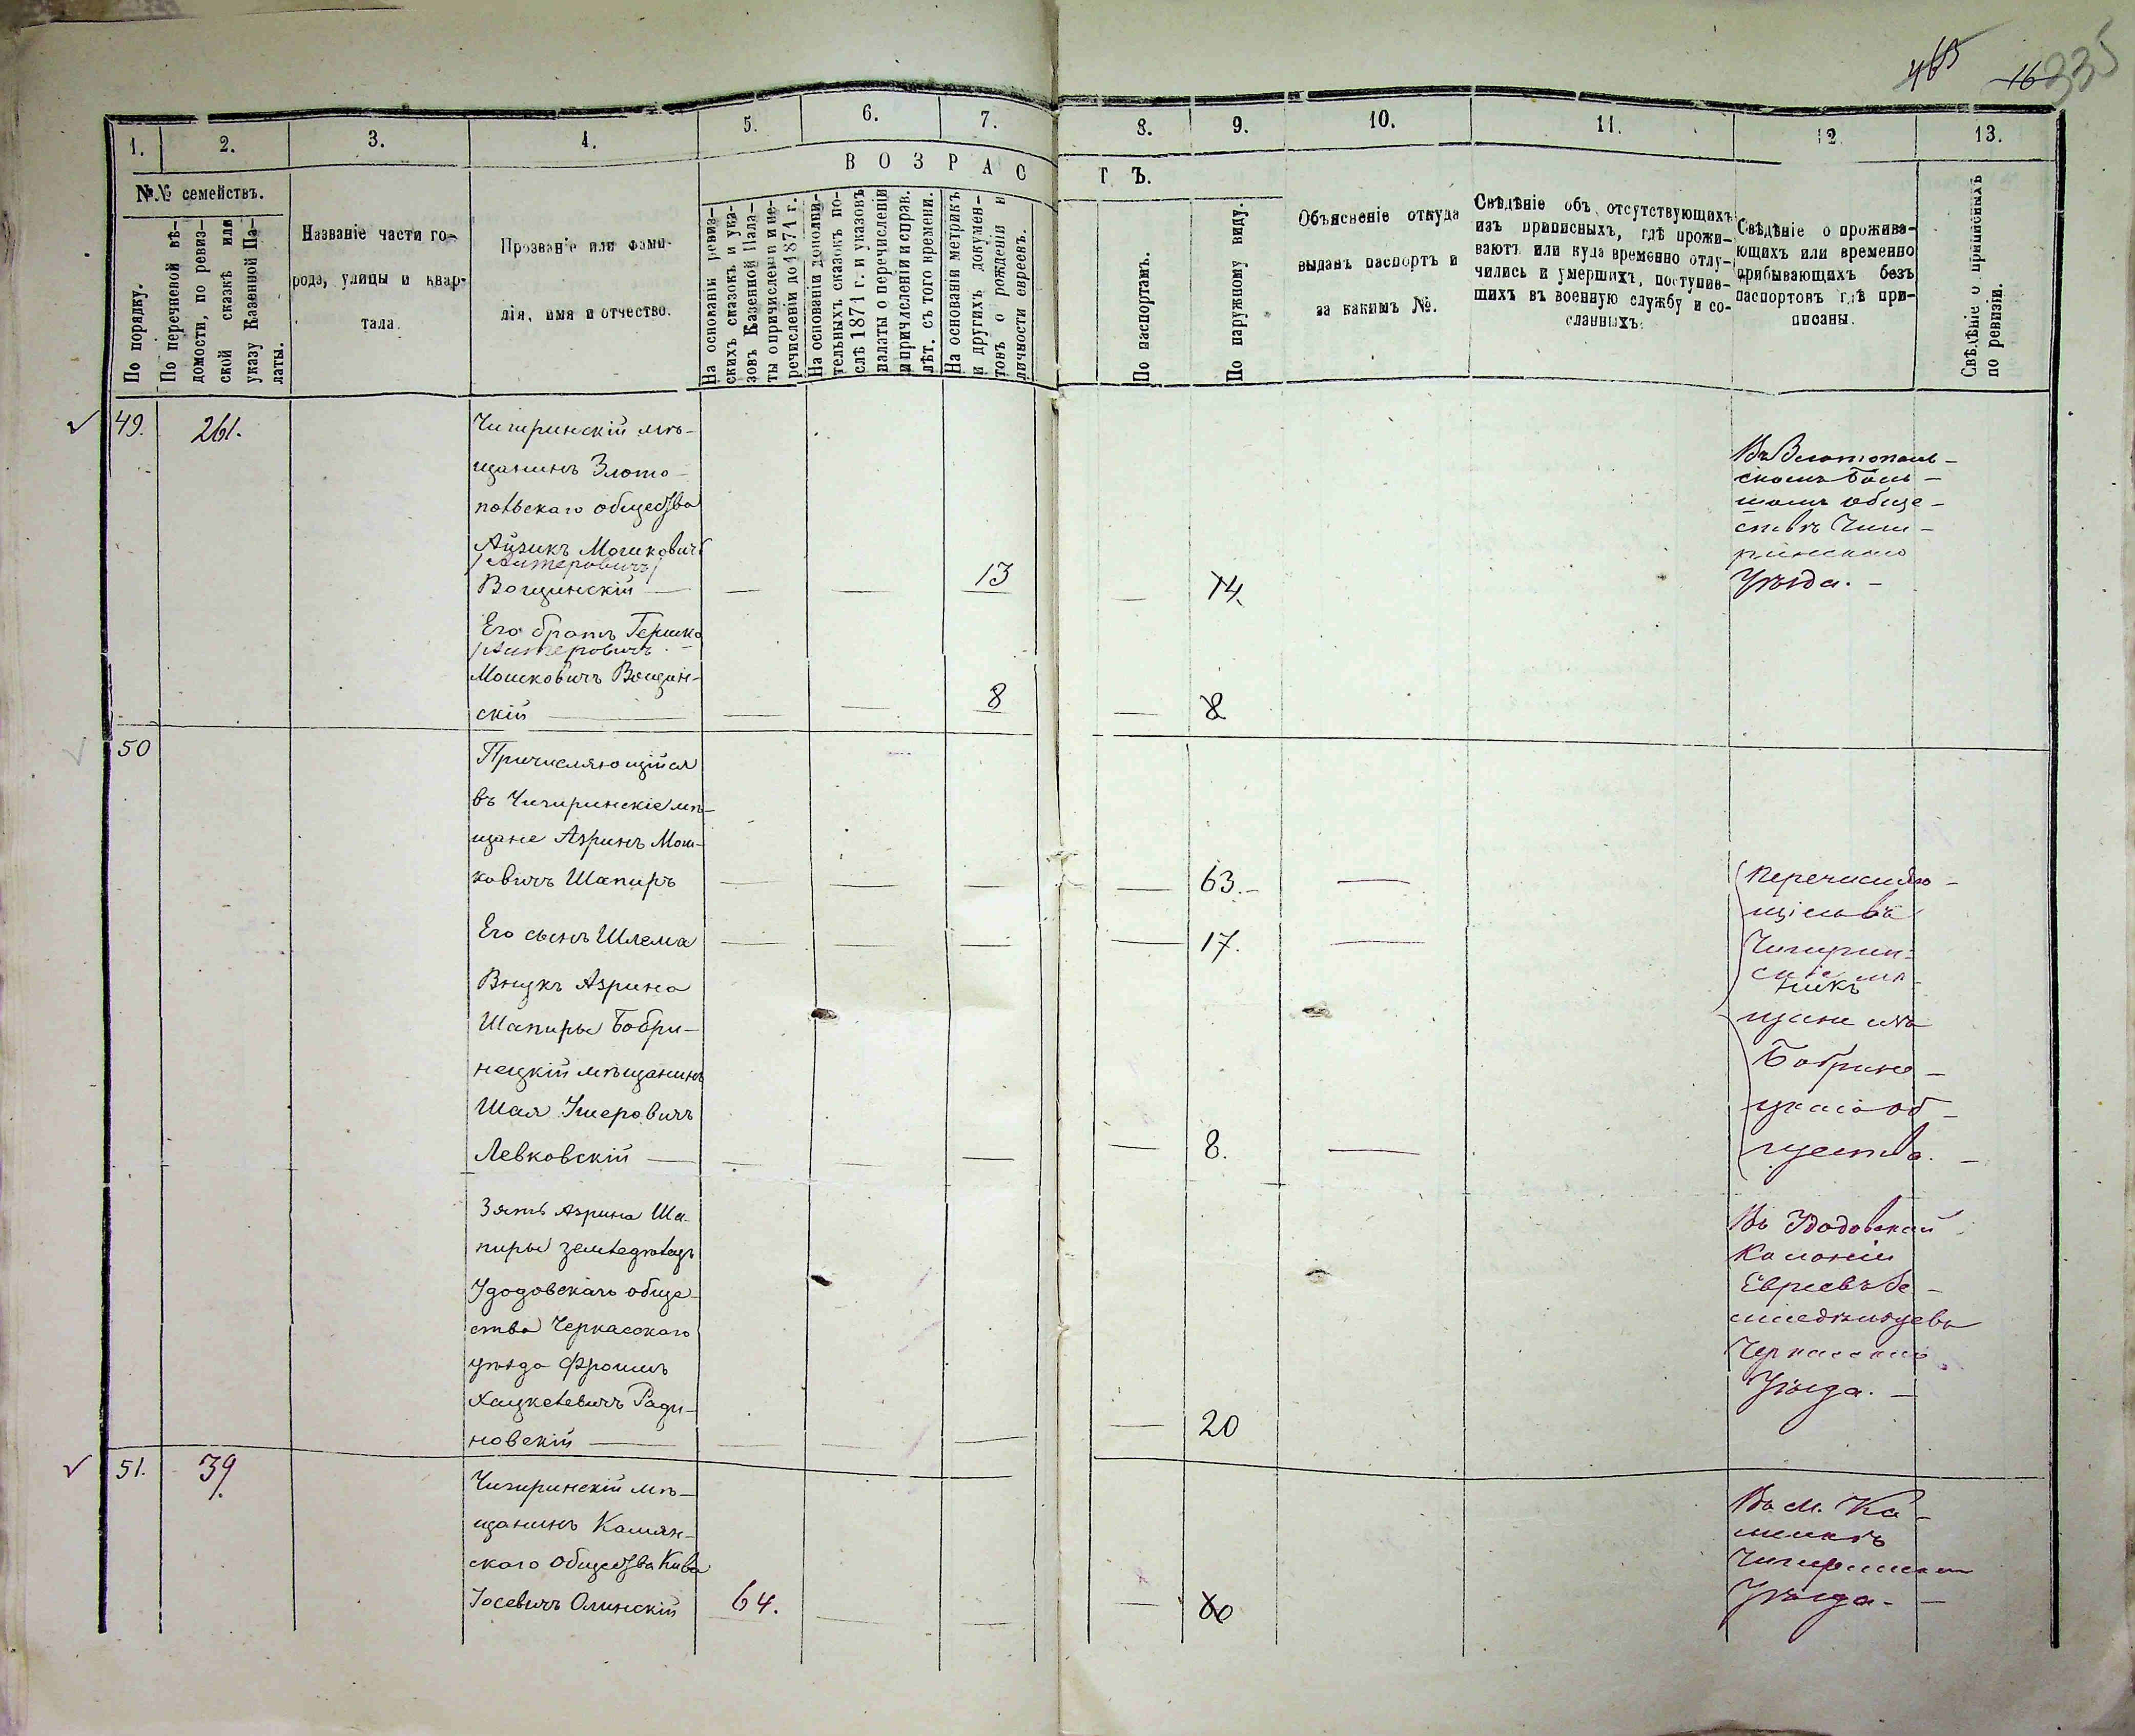 465 16 335
1. 2. 3. 4. 5. 6. 7. 8. 9. 10. 11. 12. 13.
ВОЗРАСТЪ.
№№ семействъ.
По порядку.
По перечневой вѣ-
домости, по ревиз-
ской сказкѣ или
указу Казенной Па-
латы.
Названіе части го-
рода, улицы и квар-
тала.
Прозваніе или фами-
лія, имя и отчество.
На основаніи ревиз-
скихъ сказокъ и ука-
зовъ Казенной Пала-
ты о причисленіи и пе-
речисленіи до 1874 г.
На основаніи дополни-
тельныхъ сказокъ по-
слѣ 1874 г. и указовъ
палаты о перечисленіи
и причисленіи и справ.
лѣт. съ того времени.
На основаніи метрикъ
и другихъ докумен-
товъ о рожденіи и
личности евреевъ.
По паспортамъ.
По наружному виду.
Объясненіе откуда
выданъ паспортъ и
за какимъ №.
Свѣдѣніе объ отсутствующихъ
изъ приписныхъ, гдѣ прожи-
ваютъ или куда временно отлу-
чились и умершихъ, поступив-
шихъ въ военную службу и со-
сланныхъ.
Свѣдѣніе о прожива-
ющихъ или временно
прибывающихъ безъ
паспортовъ гдѣ при-
писаны.
Свѣдѣніе о приписныхъ
по ревизіи.
49. 261.
Чигиринскій мѣ-
щанинъ Злото-
польскаго общества
Айзикъ Мошковичъ
/Алтеровичъ/
Вощинскій — — — 13 — 14.
Его братъ Гершко
/Алтеровичъ
Мошковичъ Вощин-
скій — — — 8 — 8
Въ Златополь-
скомъ Боль-
шомъ обще-
ствѣ Чиги-
ринскаго
Уѣзда. —
50
Причисляющійся
въ Чигиринскіе мѣ-
щане Азринъ Мош-
ковичъ Шапиръ — — — — 63. — —
Его сынъ Шлема — — — — 17. —
Внукъ Азрина
Шапиры Бобри-
нецкій мѣщанинъ
Шая Ушеровичъ
Левковскій — — — — — 8. —
Перечисляю-
щіеся въ
Чигирин-
скіе мѣ-
щане изъ
Бобрине-
цкаго об-
щества. —
Зять Азрина Ша-
пиры земледѣлецъ
Удодовскаго обще-
ства Черкасскаго
уѣзда Фроимъ
Хацкелевичъ Ради-
новскій — — — — — 20
Въ Удодовской
Колоніи
Евреевъ Зе-
мледѣльцевъ
Черкасскаго
Уѣзда. —
51. 39.
Чигиринскій мѣ-
щанинъ Камян-
скаго Общества Кива
Іосевичъ Олинскій 64. — — — 60
Въ м. Ка-
менкѣ
Чигиринскаго
Уѣзда. —